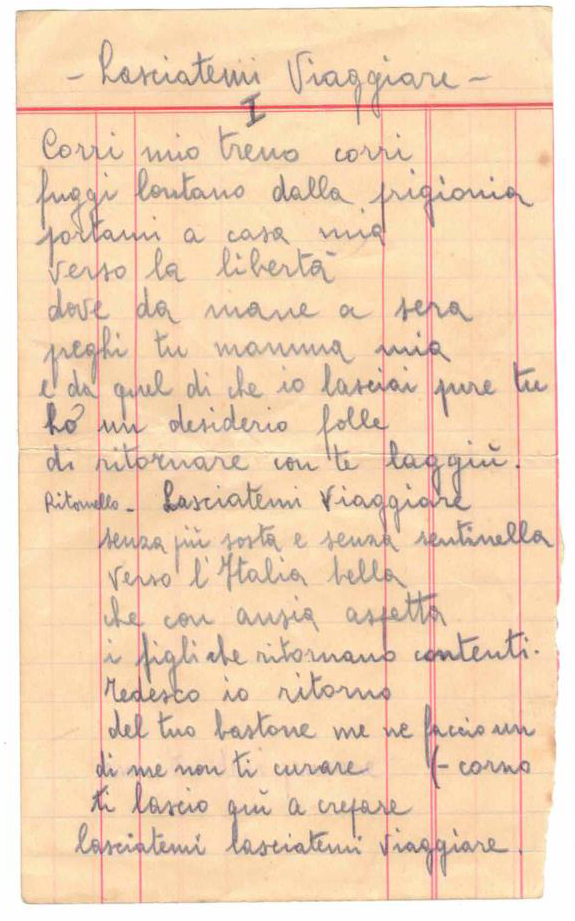 - Lasciatemi Viaggiare -
I
Corri mio treno corri
fuggi lontano dalla prigionia
portami a casa mia
verso la libertà
dove da mane a sera
preghi tu mamma mia
e da quel di che io lasciai pure tu
hò un desiderio folle
di ritornare con te laggiù.
Ritornello - Lasciatemi Viaggiare
senza più sosta e senza sentinella
verso l'Italia bella
che con ansia aspetta
i figli che ritornano contenti.
Tedesco io ritorno
del tuo bastone me ne faccio un
di me non ti curare (- corno
ti lascio giù a crepare
lasciatemi lasciatemi viaggiare.